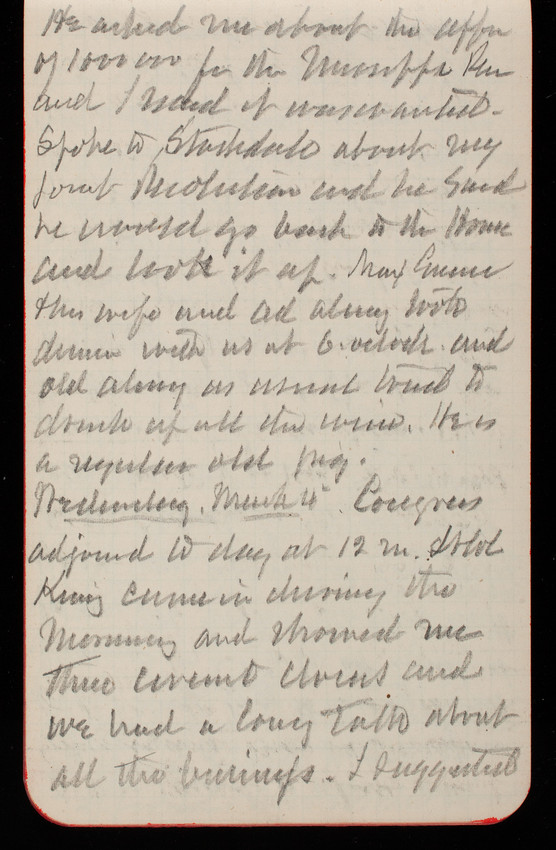 He asked me about the offer
of 1000000 for the Mississippi River
and I said it was wanted.
Spoke to Stockdale about my
Joint Resolution and he said
he would go back to the House
and look it up. Max
& his wife and along took
dinner with us at 6 oclock and
old along as usual tried to
drink up all the wine. He is
a regular old pig.
Wednesday, March 4. Congress
adjourned to day at 12 m.
King came in during the
Morning and showed me
three and
we had a long talk about
all the buildings. I suggested